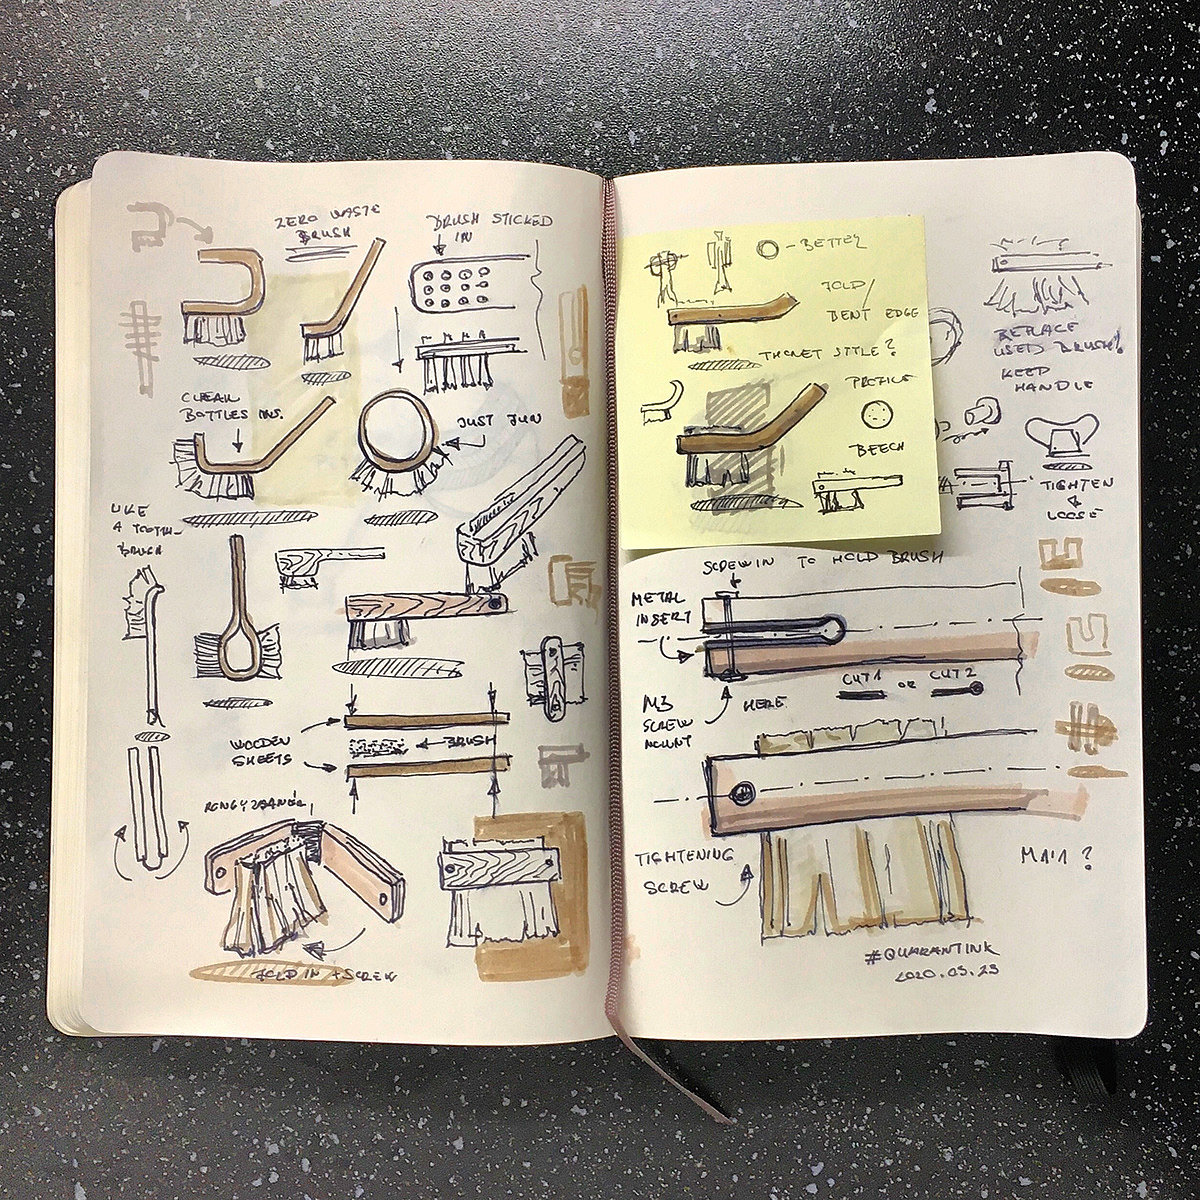 ZERO WASTE
BRUSH
BRUSH STICKED
IN
CLEAN
BOTTLES INS.
JUST FUN
LIKE
A TOOTH-
BRUSH
WOODEN
SHEETS
BRUSH
FOLD IN + SCREW
- BETTER
FOLD/
BENT EDGE
THONET STYLE?
PROFILE
BEECH
REPLACE
USED BRUSH!
KEEP
HANDLE
TIGHTEN
&
LOOSE
SCREW IN TO HOLD BRUSH
METAL
INSERT
CUT1 OR CUT2
M3
SCREW
MOUNT
HERE
TIGHTENING
SCREW
#QUARANTINK
2020.03.23